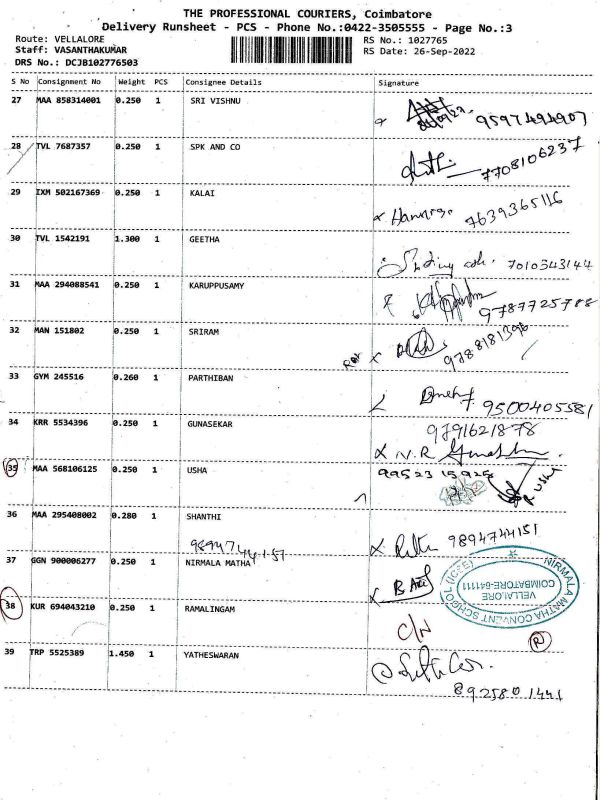 THE PROFESSIONAL COURIERS, Coimbatore
Delivery Runsheet - PCS - Phone No.:0422-3505555 - Page No.:3
Route: VELLALORE
RS No.: 1027765
Staff: VASANTHAKUMAR
RS Date: 26-Sep-2022
DRS No.: DCJB102776503
S No Consignment No Weight PCS Consignee Details Signature
27 MAA 858314001 0.250 1 SRI VISHNU
9597494907
28 TVL 7687357 0.250 1 SPK AND CO
7708106237
29 IXM 502167369 0.250 1 KALAI
7639365116
30 TVL 1542191 1.300 1 GEETHA
7010343144
31 MAA 294088541 0.250 1 KARUPPUSAMY
9787725788
32 MAN 151802 0.250 1 SRIRAM
9788181396
33 GYM 245516 0.260 1 PARTHIBAN
9500405581
34 KRR 5534396 0.250 1 GUNASEKAR
9791621878
N.R
35 MAA 568106125 0.250 1 USHA
99523 15925
USHA
36 MAA 295408002 0.280 1 SHANTHI
9894744151
9894744151
37 GGN 900006277 0.250 1 NIRMALA MATHA
NIRMALA MATHA CONVENT SCHOOL (ICSE)
VELLALORE
COIMBATORE-641111
38 KUR 694043210 0.250 1 RAMALINGAM
C/N
R
39 TRP 5525389 1.450 1 YATHESWARAN
8925801441